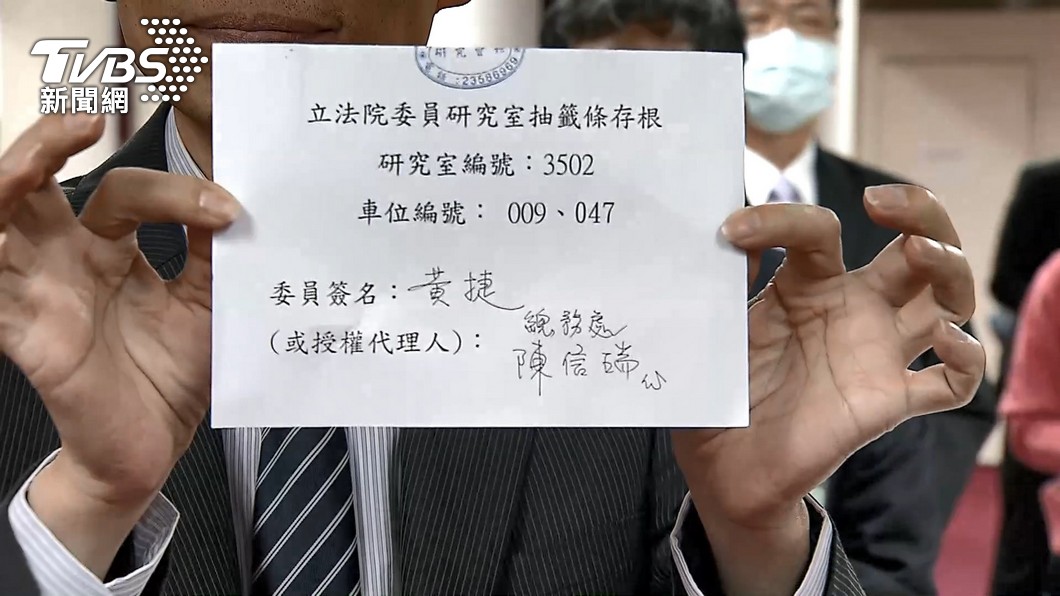 TVBS
新聞網
23586969
立法院委員研究室抽籤條存根
研究室編號：3502
車位編號： 009、047
委員簽名：黃捷
(或授權代理人)：
總務處
陳信瑞代